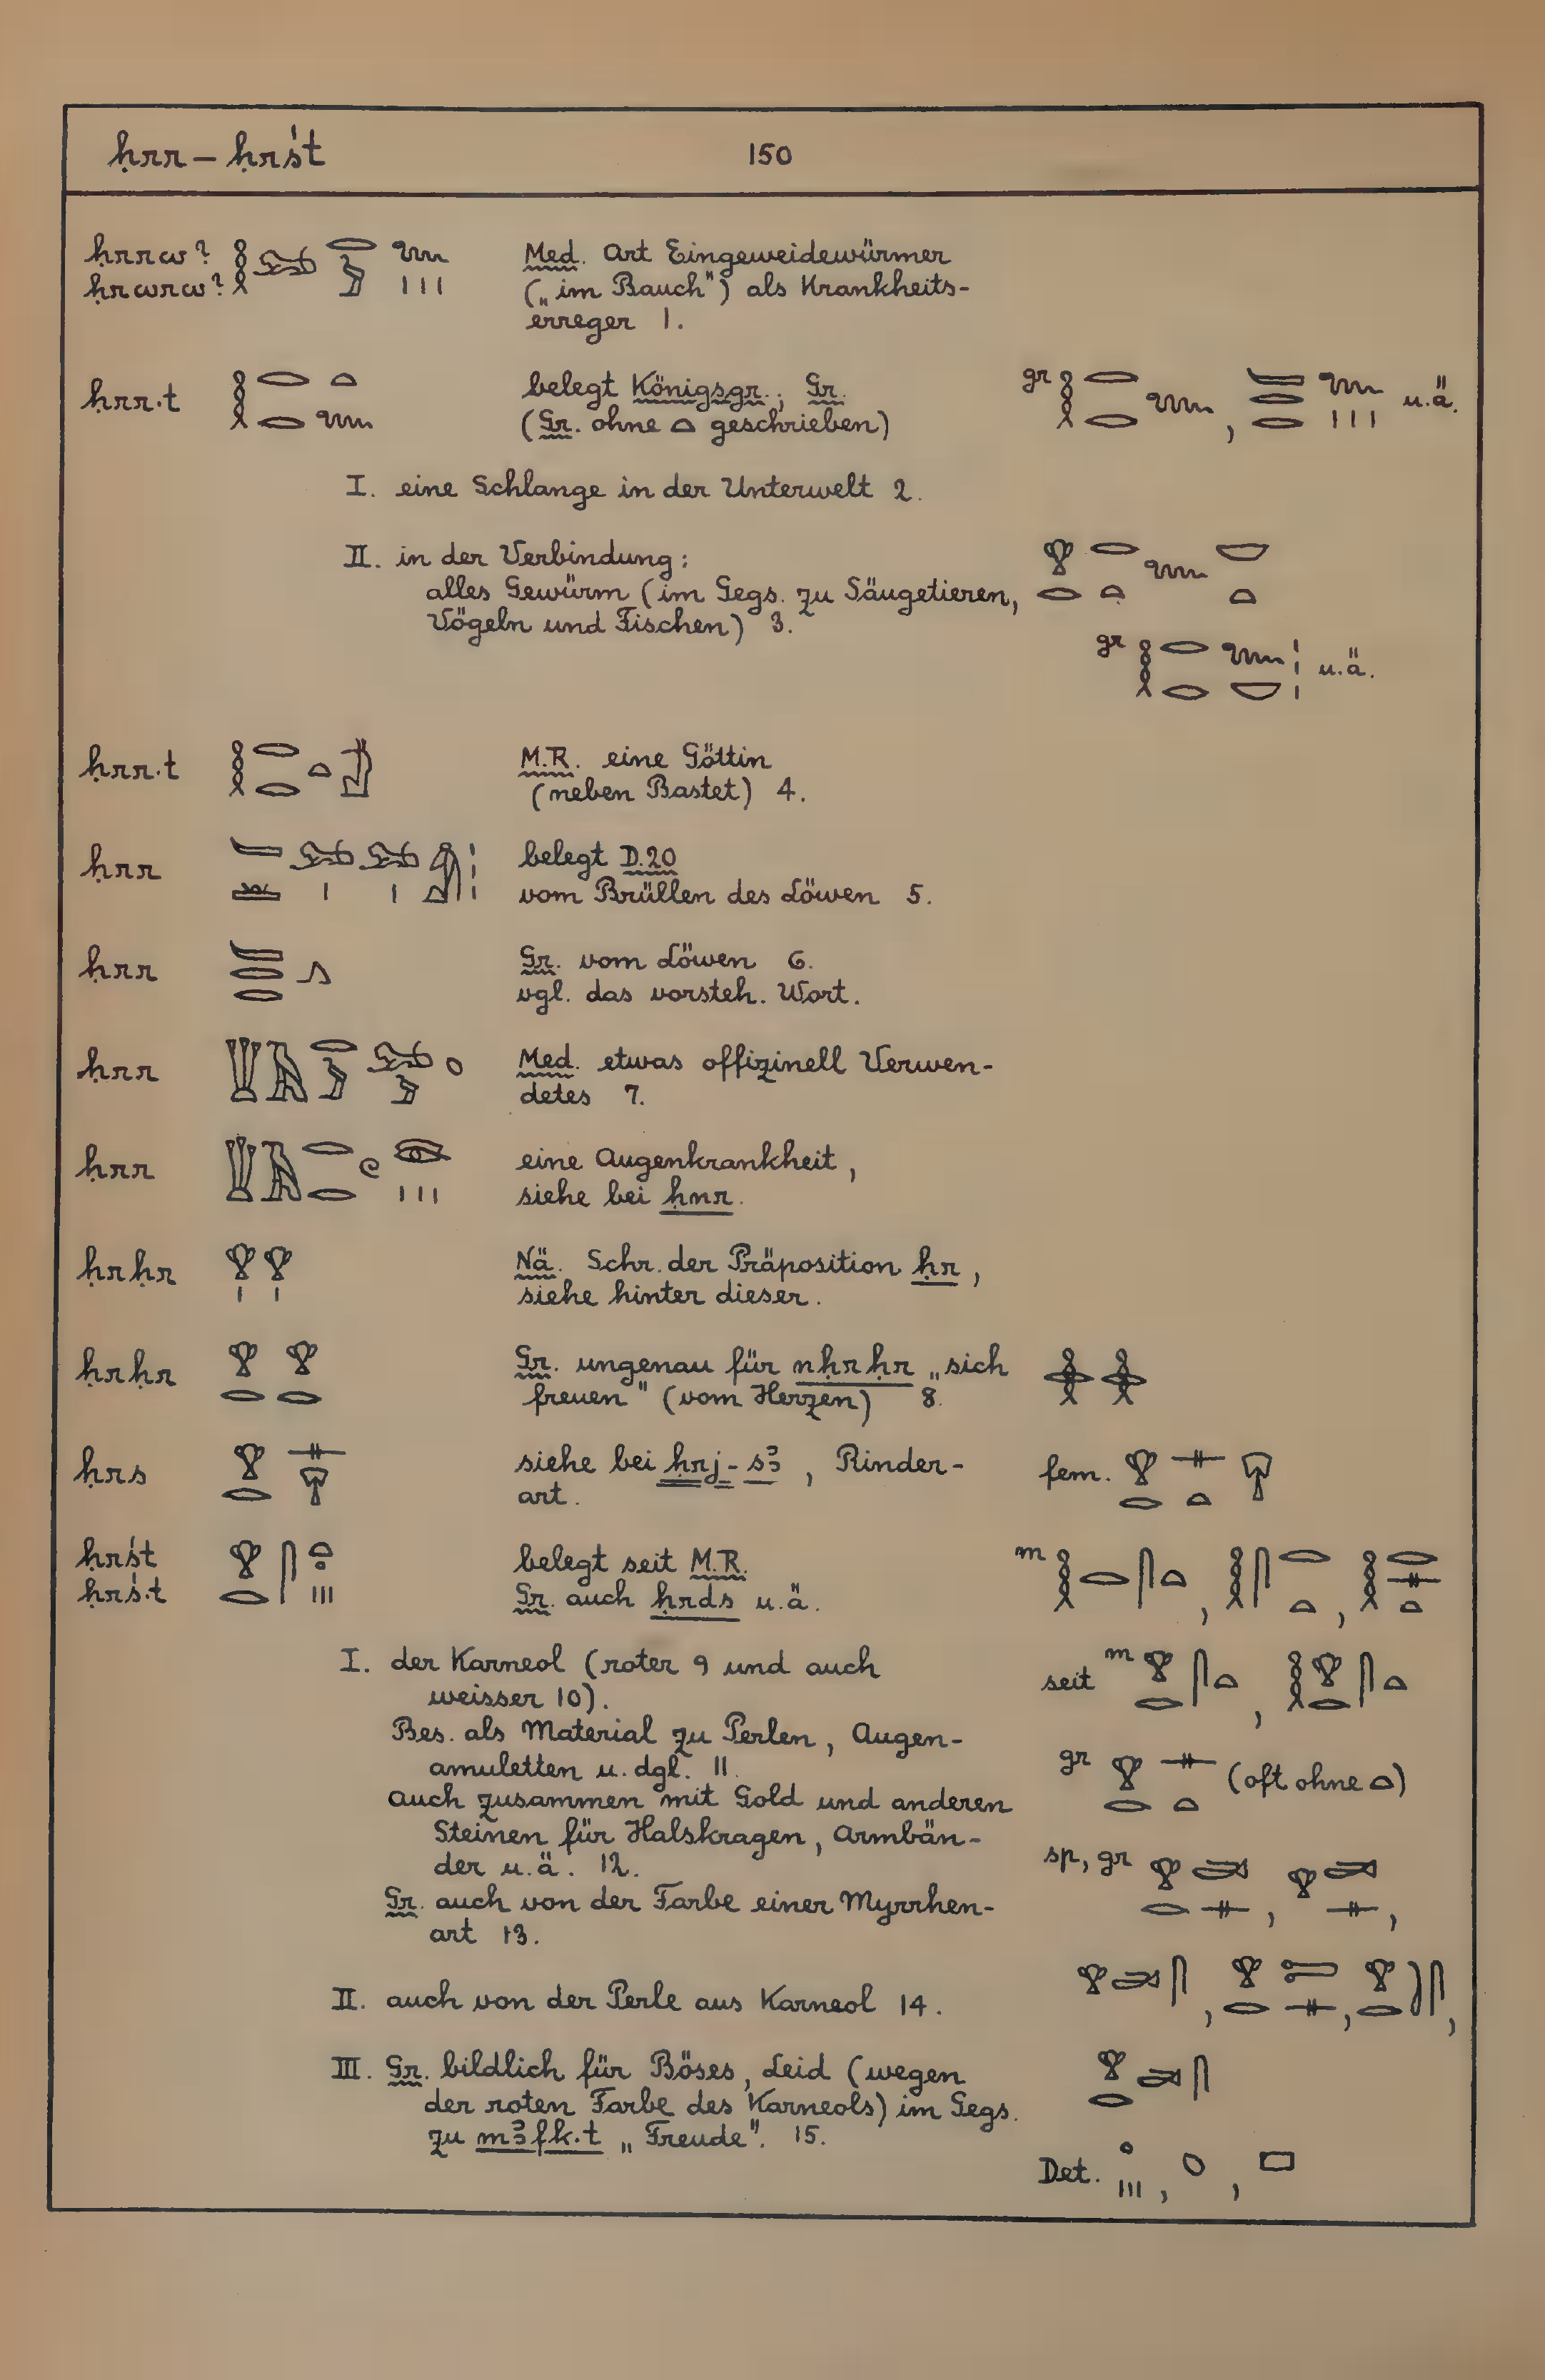 ḥrr – ḥrśt 150
ḥrrw? Med. Art Eingeweidewürmer
ḥrwrw? („im Bauch") als Krankheits-
erreger 1.
ḥrr·t belegt Königsgr.; Gr. gr , u.ä.
(Gr. ohne 𓏏 geschrieben)
I. eine Schlange in der Unterwelt 2.
II. in der Verbindung:
alles Gewürm (im Gegs. zu Säugetieren,
Vögeln und Fischen) 3.
gr u.ä.
ḥrr·t M.R. eine Göttin
(neben Bastet) 4.
ḥrr belegt D.20
vom Brüllen des Löwen 5.
ḥrr Gr. vom Löwen 6.
vgl. das vorsteh. Wort.
ḥrr Med. etwas offizinell Verwen-
detes 7.
ḥrr eine Augenkrankheit,
siehe bei ḥnr.
ḥrḥr Nä. Schr. der Präposition ḥr,
siehe hinter dieser.
ḥrḥr Gr. ungenau für nḥrḥr „sich
freuen" (vom Herzen) 8.
ḥrs siehe bei ḥrj-sꜣ, Rinder- fem.
art.
ḥrśt belegt seit M.R. m , ,
ḥrś·t Gr. auch ḥrds u.ä.
I. der Karneol (roter 9 und auch seit m ,
weisser 10).
Bes. als Material zu Perlen, Augen-
amuletten u. dgl. 11. gr (oft ohne 𓏏)
Auch zusammen mit Gold und anderen
Steinen für Halskragen, Armbän-
der u.ä. 12. sp, gr , ,
Gr. auch von der Farbe einer Myrrhen-
art 13.
II. auch von der Perle aus Karneol 14. , , ,
III. Gr. bildlich für Böses, Leid (wegen
der roten Farbe des Karneols) im Gegs.
zu mꜣfk·t „Freude". 15.
Det. , ,